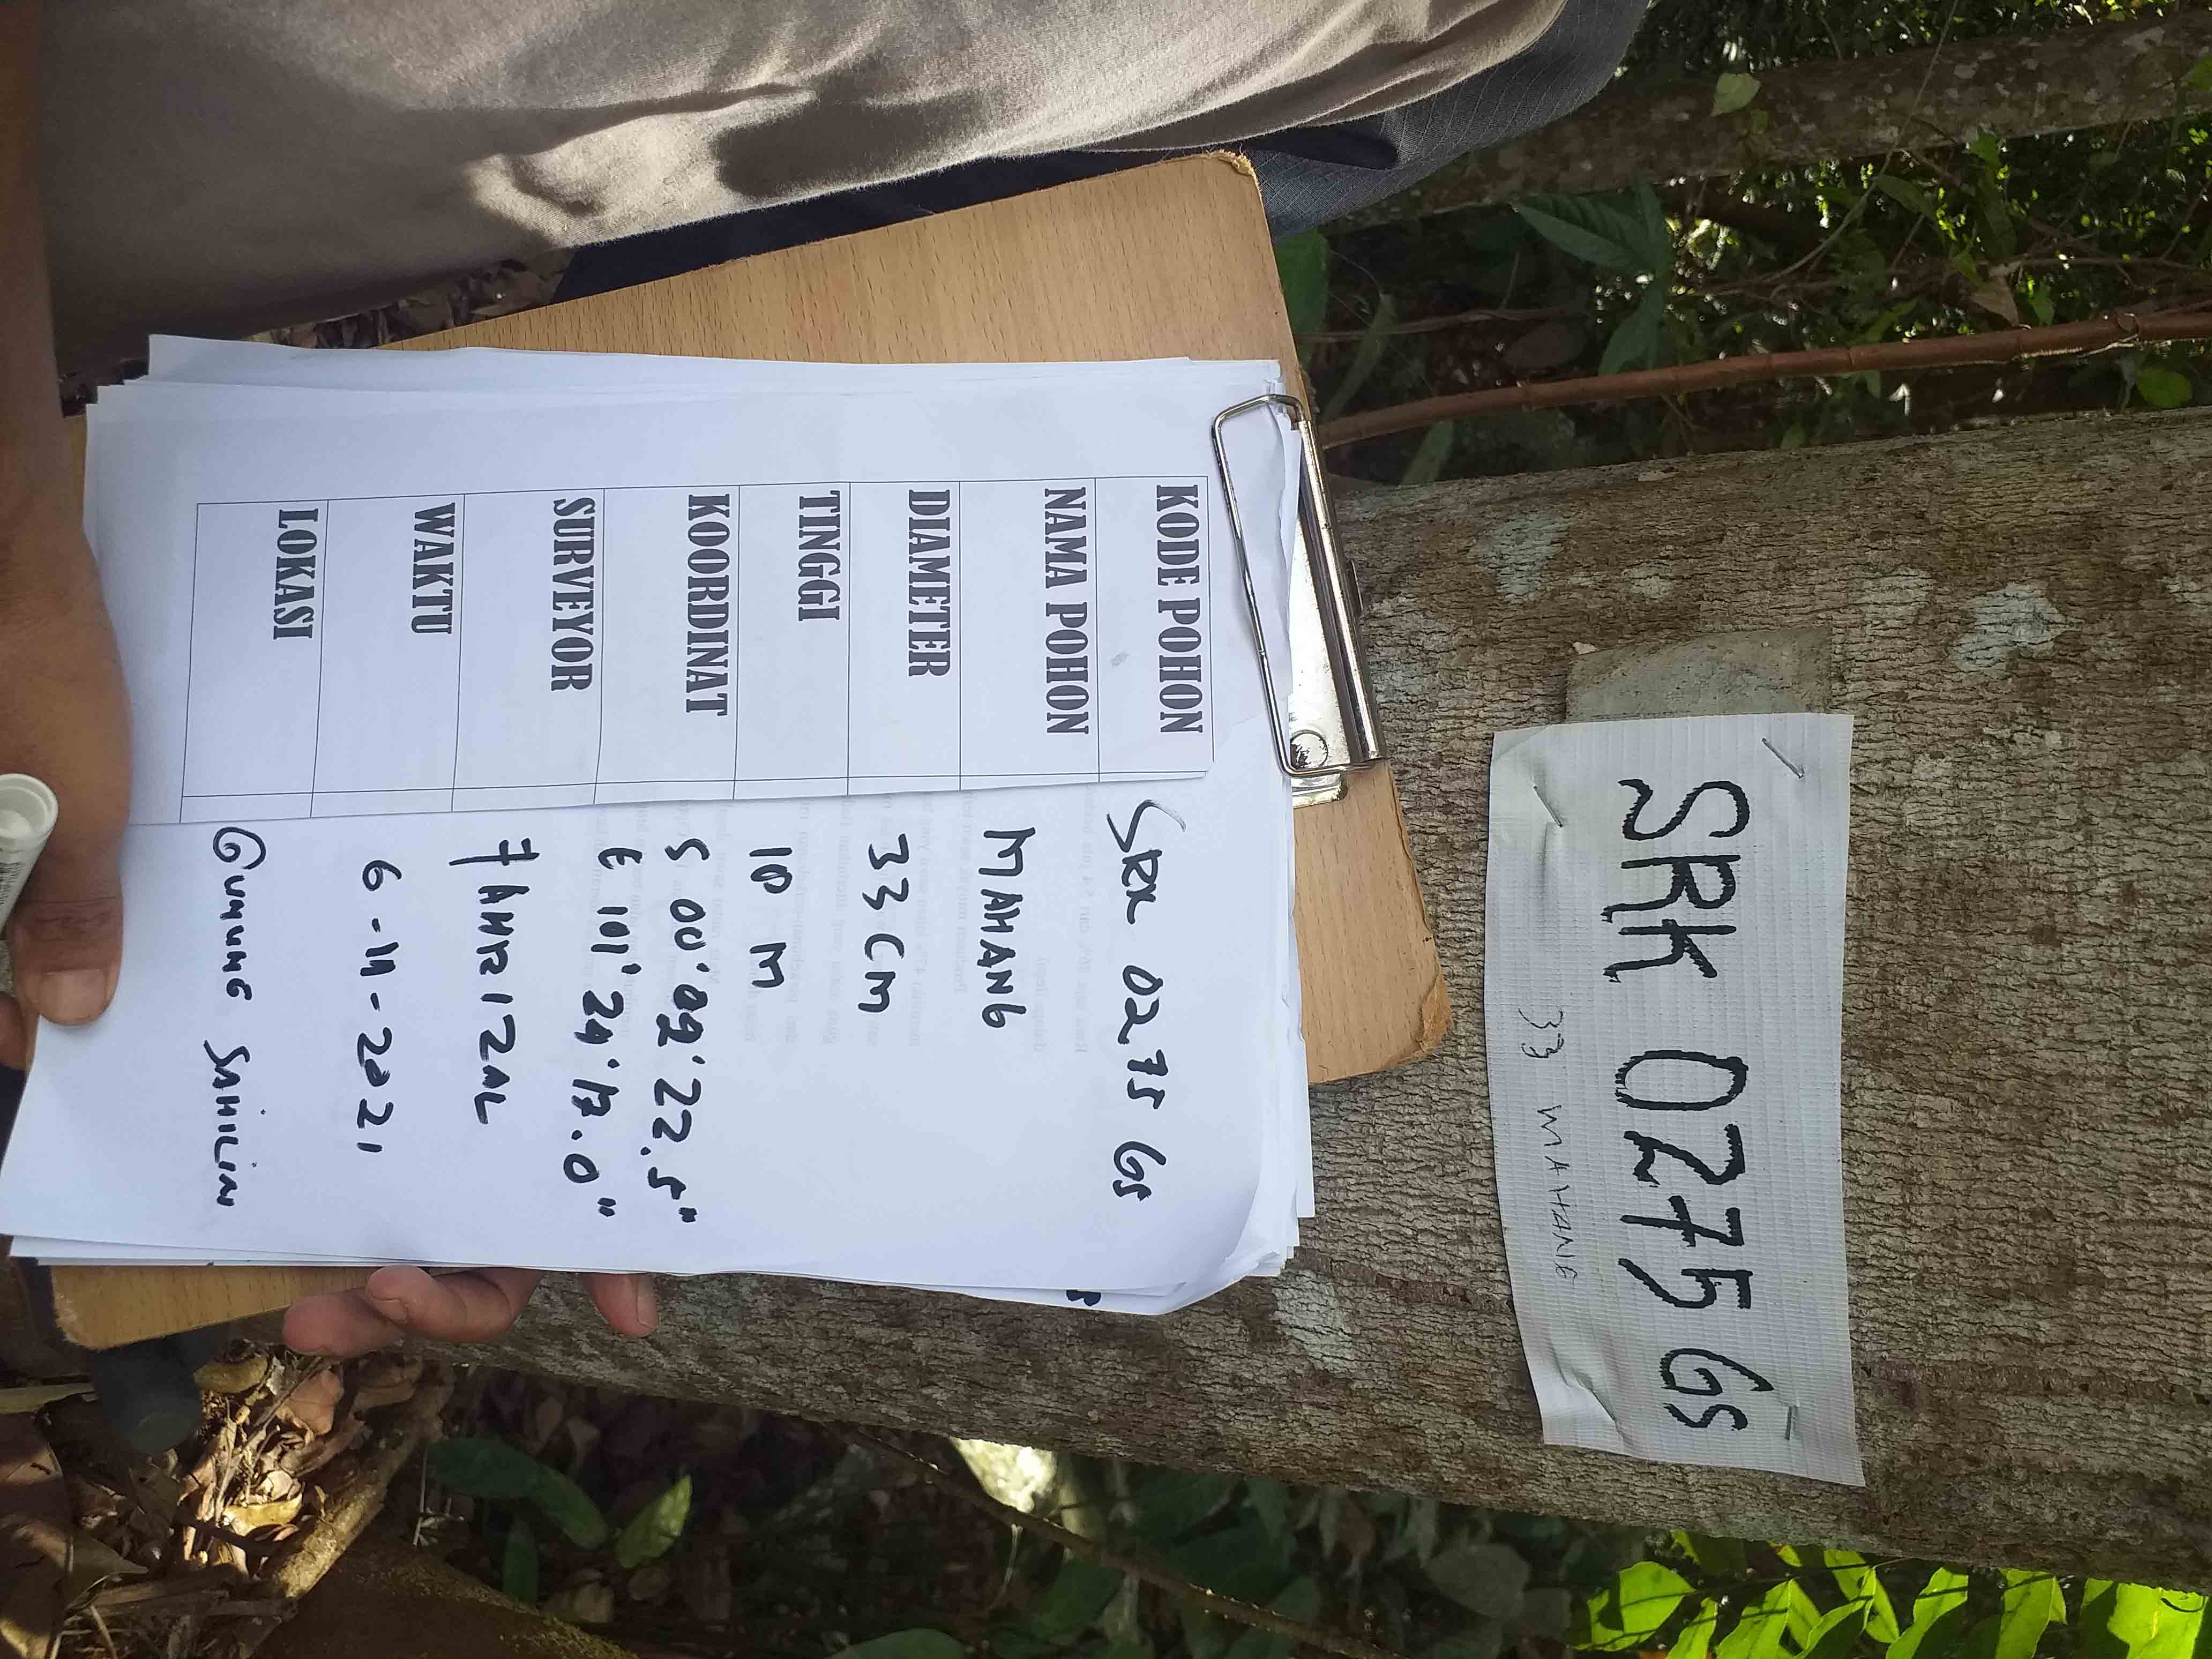 SRK 0275 GS
33 MAHANG
KODE POHON SRK 0275 GS
NAMA POHON MAHANG
DIAMETER 33 CM
TINGGI 10 M
KOORDINAT S 00°09'22.5"
E 101°24'17.0"
SURVEYOR FAHRIZAL
WAKTU 6-11-2021
LOKASI GUNUNG SAHILIN